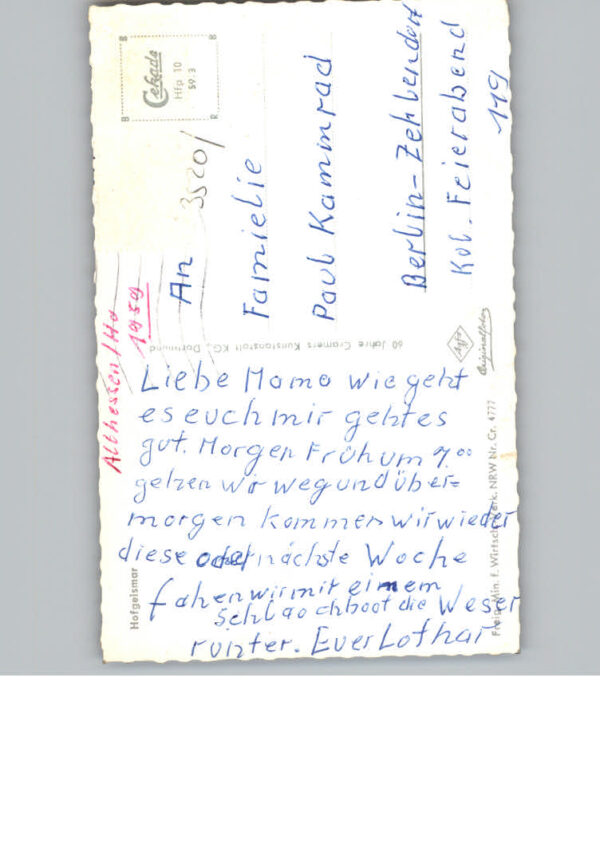 B B
Cekade
Hfp 10
59.3
B R
3520/
An
Familie
Paul Kammrad
Berlin-Zehlendorf
Kol. Feierabend
119
Althessen/Ho
1959
60 Jahre Cramers Kunstanstalt KG., Dortmund
Agfa
Originalfoto
Liebe Mama wie geht
es euch mir geht es
gut. Morgen Früh um 7.00
gehen wir weg und über=
morgen kommen wir wieder
diese oder nächste Woche
fahen wir mit einem
Schlaochboot die Weser
runter. Euer Lothar
Hofgeismar
Freig. Min. f. Wirtsch. Verk. NRW Nr. Cr. 4777